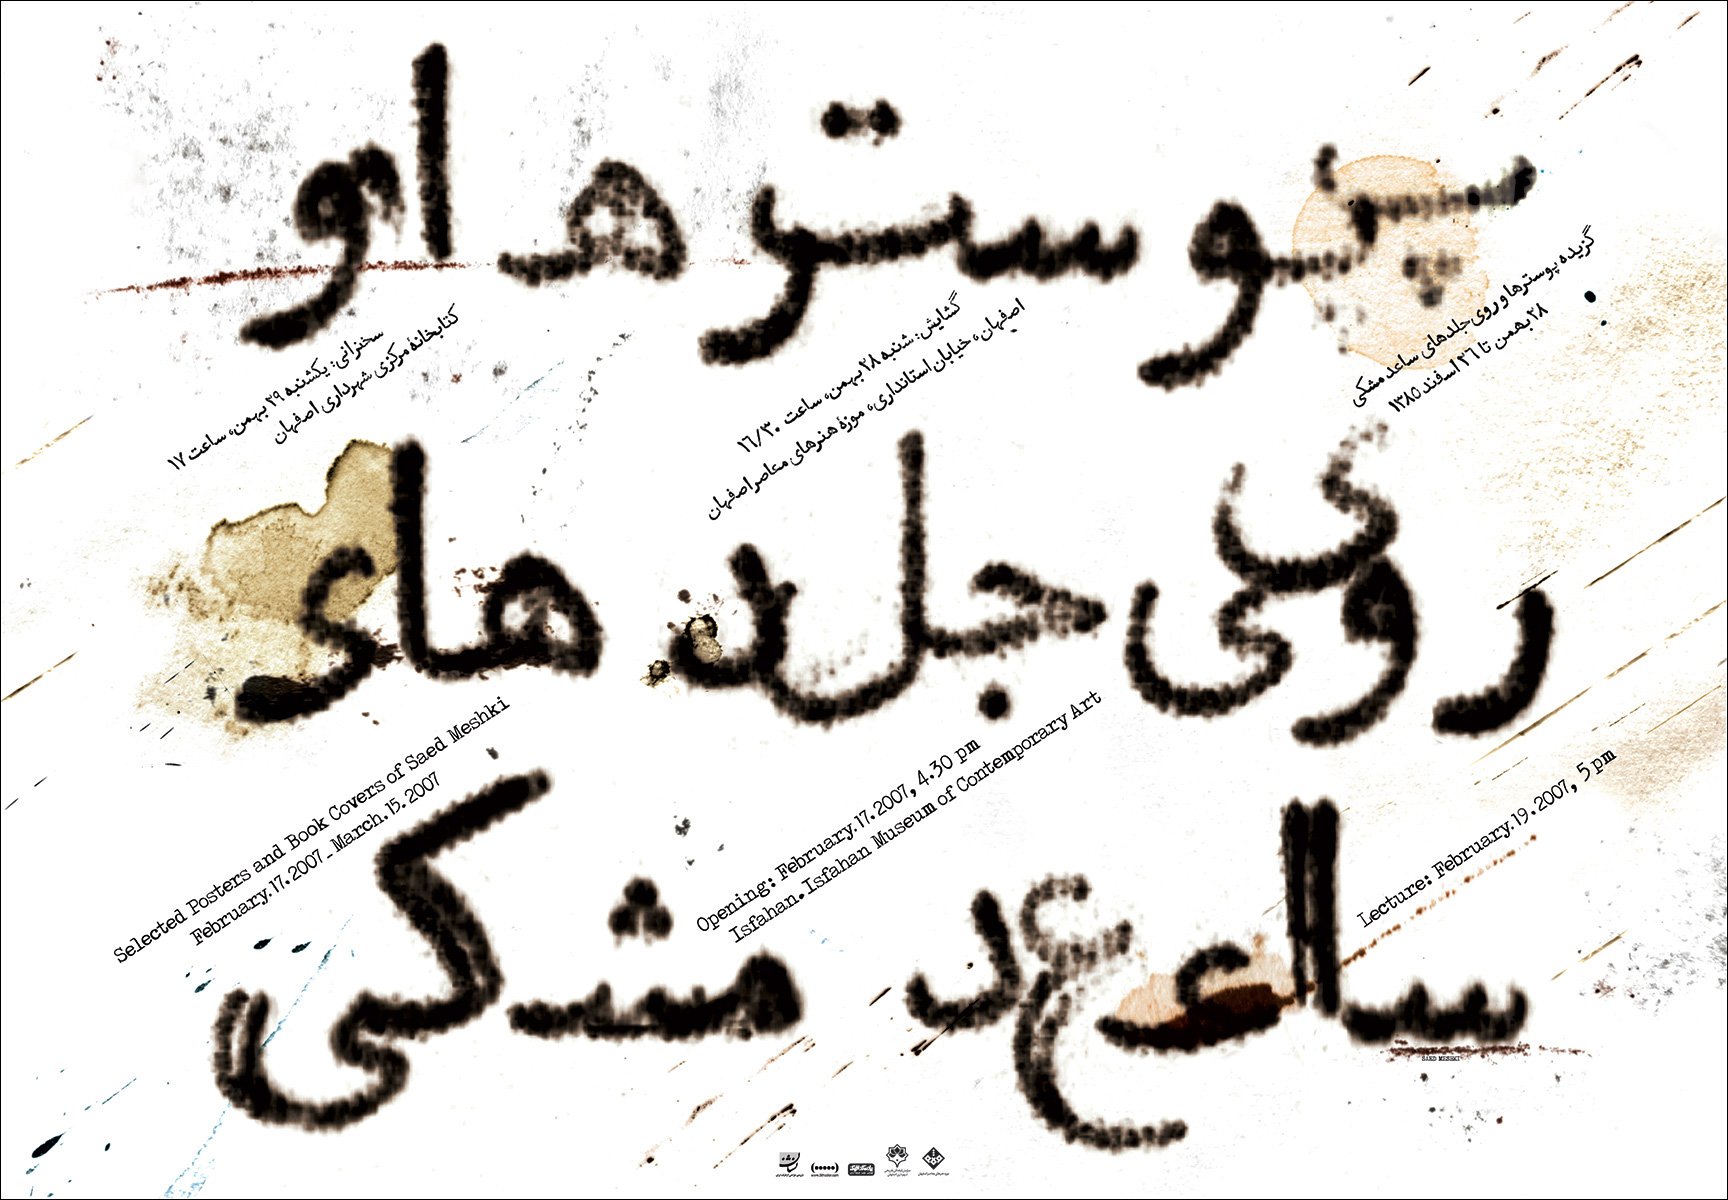 پوسترها و
روی جلدهای
ساعد مشکی
گزیده پوسترها و روی جلدهای ساعد مشکی
۲۸ بهمن تا ۲۶ اسفند ۱۳۸۵
گشایش: شنبه ۲۸ بهمن، ساعت ۱۶/۳۰
اصفهان، خیابان استانداری، موزهٔ هنرهای معاصر اصفهان
سخنرانی: یکشنبه ۲۹ بهمن، ساعت ۱۷
کتابخانهٔ مرکزی شهرداری اصفهان
Selected Posters and Book Covers of Saed Meshki
February.17.2007_March.15.2007
Opening: February.17.2007, 4.30 pm
Isfahan.Isfahan Museum of Contemporary Art
Lecture: February.19.2007, 5 pm
SAED MESHKI